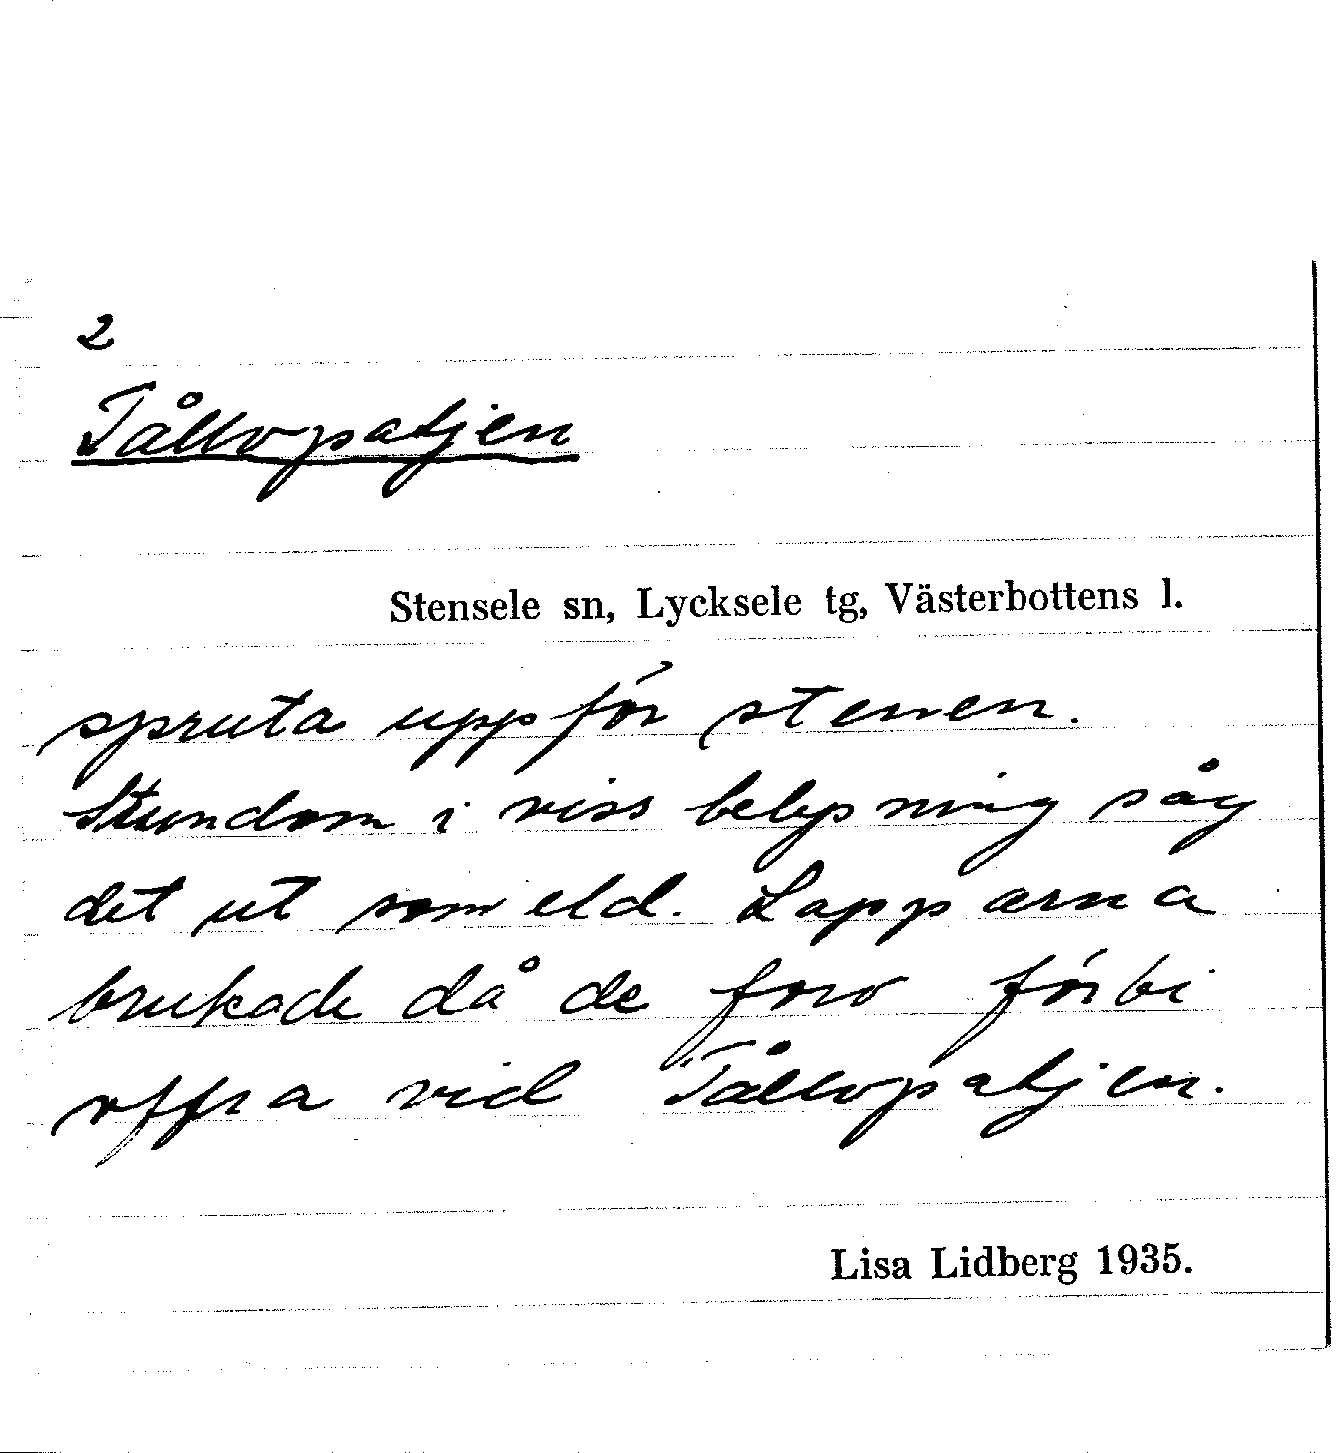 2
Tållopatjen
Stensele sn, Lycksele tg, Västerbottens l.
spruta uppför stenen.
Stundom i viss belysning såg
det ut som eld. Lapparna
brukade då de foro förbi
offra vid Tållopatjen.
Lisa Lidberg 1935.